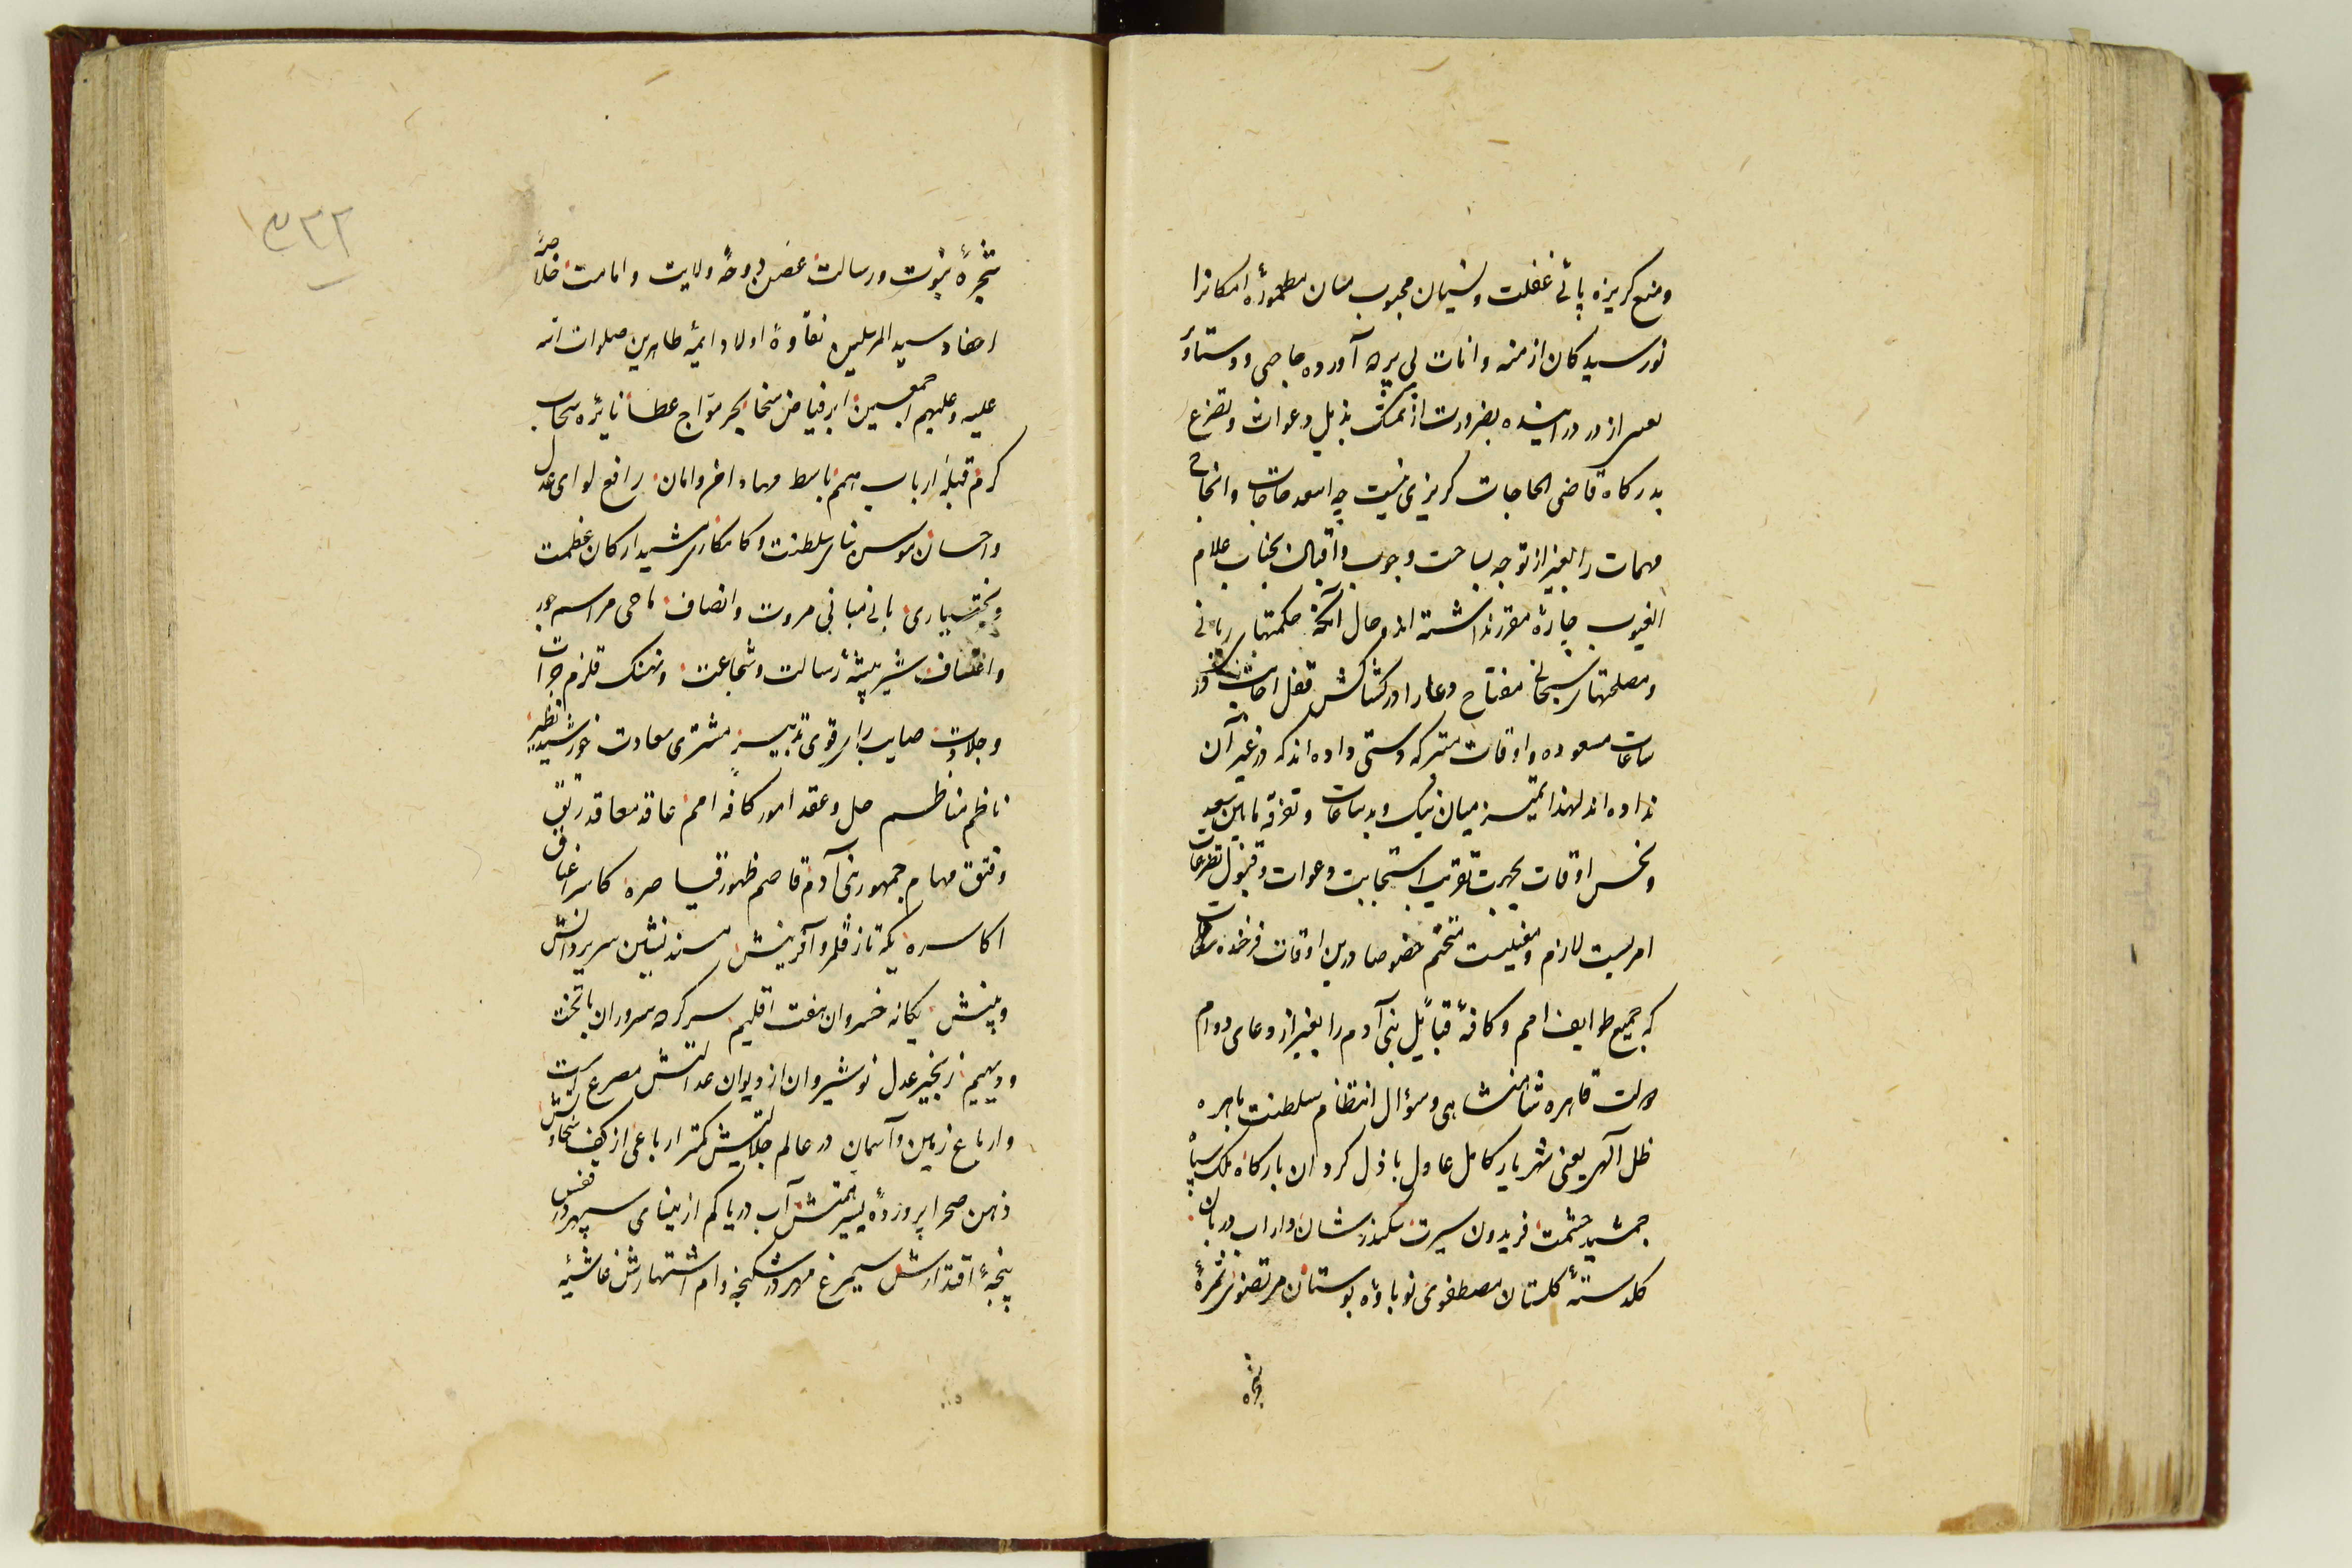 ومنع کریزه پائی غفلت ونسیان محبوب سان مطمورهٔ امکانرا
نورسیدکان ازمنه وانات لی بره آورده جامی ودستاو
از در در اینده بضرورت از تمسک بذیل دعوات وتضرع
بدرکاه قاضی الحاجات کریزی نیست چه اسعد حاجات وانجاح
مهمات را بغیر از توجه بساحت وجوب واقبال بجناب علام
الغیوب چارهٔ مقرر نداشته اند وحال آنکه حکمتهای ربانی
ومصلحتهای سبحانی مفتاح دعا را در کشاکش قفل اجابت در
ساعات مسعوده واوقات متبرکه دستی داده اند که در غیر آن
نداده اند لهذا تمیز میان نیک وبد ساعات وتفرقه مابین سعد
ونحس اوقات بجهت تقریب استجابت دعوات وقبول تضرعات
امریست لازم ومحتم خصوصا درین اوقات فرخنده ساعات
که جمیع طوایف امم وکافهٔ قبایل بنی آدم را بغیر از دعای دوام
دولت قاهره شاهنشاهی وسؤال انتظام سلطنت باهره
ظل آلهی یعنی شهریار کامل عادل باذل کردان بارکاه ملک سپاه
جمشید حشمت فریدون سیرت سکندر شان داراب دربان
کلدستهٔ کلستان مصطفوی نوباوهٔ بوستان مرتضوی ثمرهٔ
شجره
۱۵۲۲
شجرهٔ نبوت ورسالت غصن دوحهٔ ولایت وامامت خلاصهٔ
احفاد سید المرسلین نقاوهٔ اولاد ایمهٔ طاهرین صلوات الله
علیه وعلیهم اجمعین ابر فیاض سخا بحر مواج عطا نایرهٔ سحاب
کرم قبلهٔ ارباب همم باسط مهاد امن وامان رافع لوای عدل
واحسان موسس بنای سلطنت وکامکاری مشید ارکان عظمت
وبختیاری بانی مبانی مروت وانصاف ماحی مراسم جور
واعتساف شیر بیشهٔ رسالت وشجاعت ونهنک قلزم جرات
وجلادت صایب رای قوی تدبیر مشتری سعادت خورشید نظیر
ناظم مناظم حل وعقد امور کافهٔ امم عاقد معاقد رتق
وفتق مهام جمهور بنی آدم قاصم ظهور قیاصره کاسر اعناق
اکاسره یکه تاز قلمرو آفرینش مسند نشین سریر دانش
وبینش یکانه خسروان هفت اقلیم سرکرده سروران با تخت
ودیهیم زنجیر عدل نوشیروان از دیوان عدالتش مصرعیست
وارباع زمین وآسمان در عالم جلالتش کمتر از رباعی از کف سخاوتش
ذهن صحرا پر وزده یسیر همتش آب دریا کم از مینای سپهر در قفس
پنجهٔ اقتدارش سیمرغ مهر در شکنجهٔ دام اشتهارش غاشیه